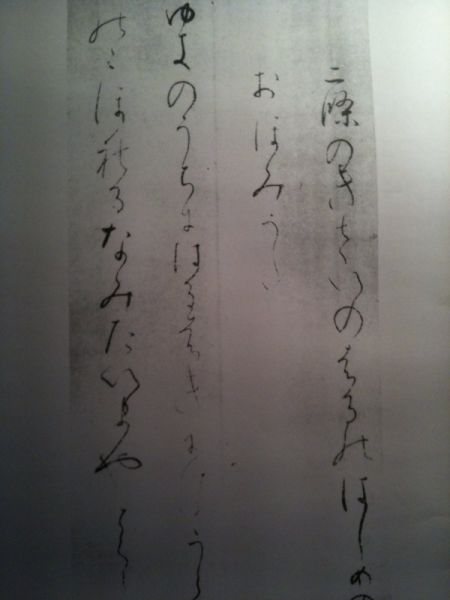 二條のきさいのはるのはしめの
おほみうた
ゆきのうちにはるはきにけりうく
のこほれるなみたいまやとく